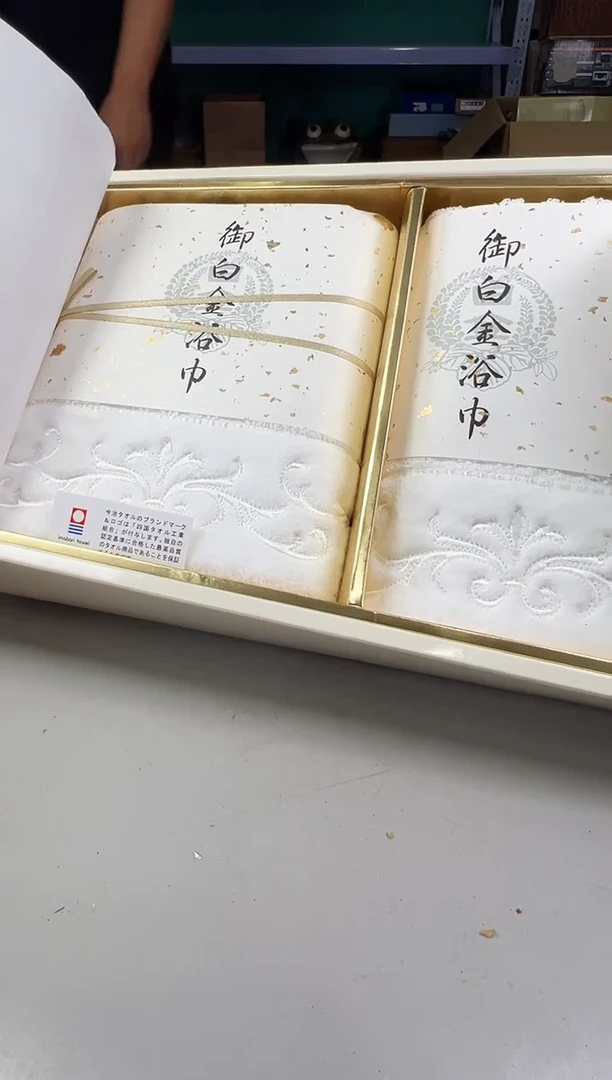 御白金浴巾
御白金浴巾
imabari towel
今治タオルのブランドマーク
&ロゴは「四国タオル工業
組合」が付与します。独自の
認定基準に合格した最高品質
のタオル商品であることを保証